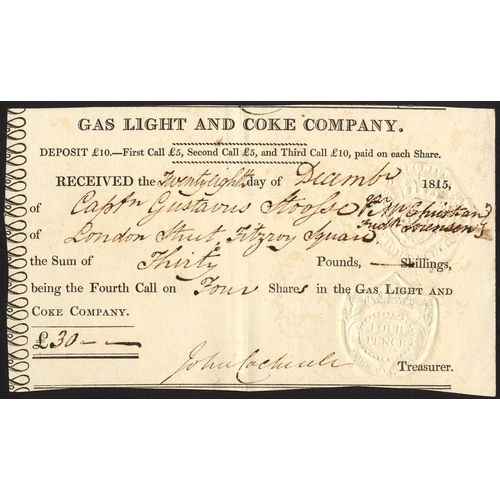 GAS LIGHT AND COKE COMPANY.
DEPOSIT £10.—First Call £5, Second Call £5, and Third Call £10, paid on each Share.
RECEIVED the Twentyeighth day of Decembr 1815,
of Captn Gustavus
of London Street Fitzroy Square
the Sum of Thirty Pounds, — Shillings,
being the Fourth Call on Four Shares in the GAS LIGHT AND
COKE COMPANY.
£30——
FOUR
PENCE
John Treasurer.